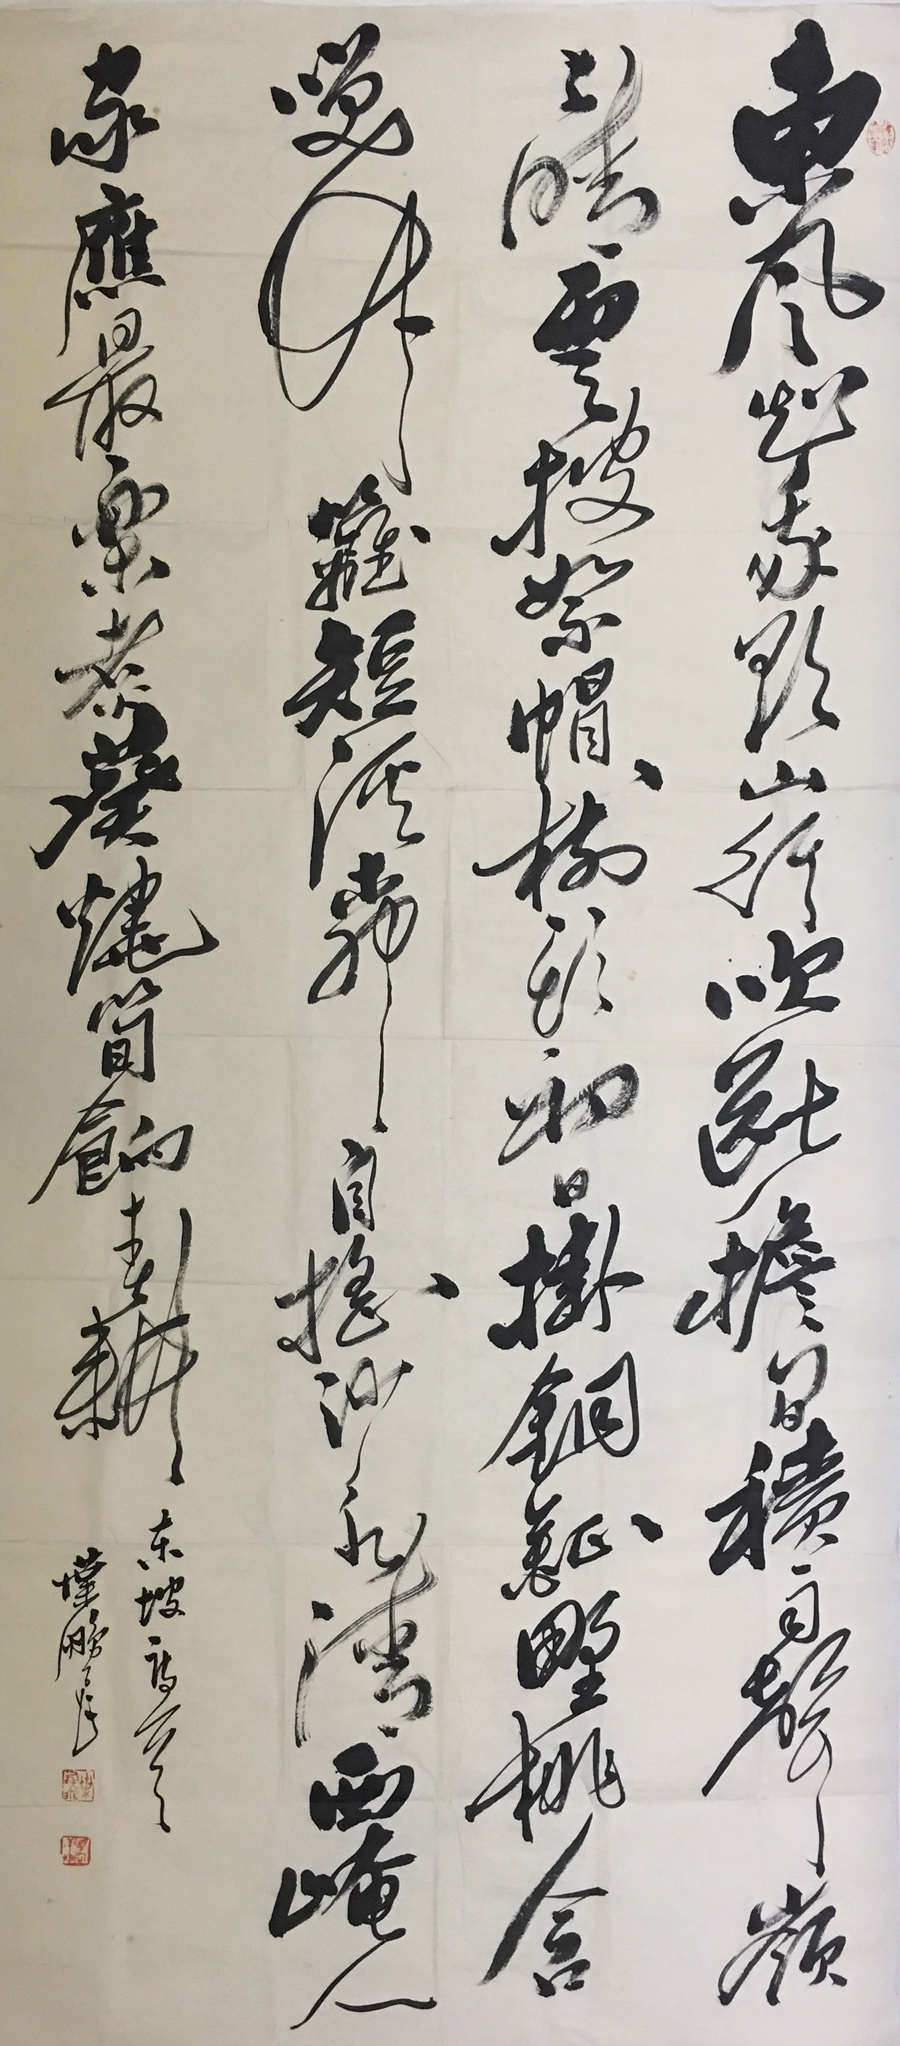 東風知我欲山行吹斷檐間積雨聲嶺
上晴雲披絮帽樹頭初日掛銅鉦野桃含
笑竹籬短溪柳自搖沙水清西崦人
家應最樂煮葵燒筍餉春耕
东坡詩一首